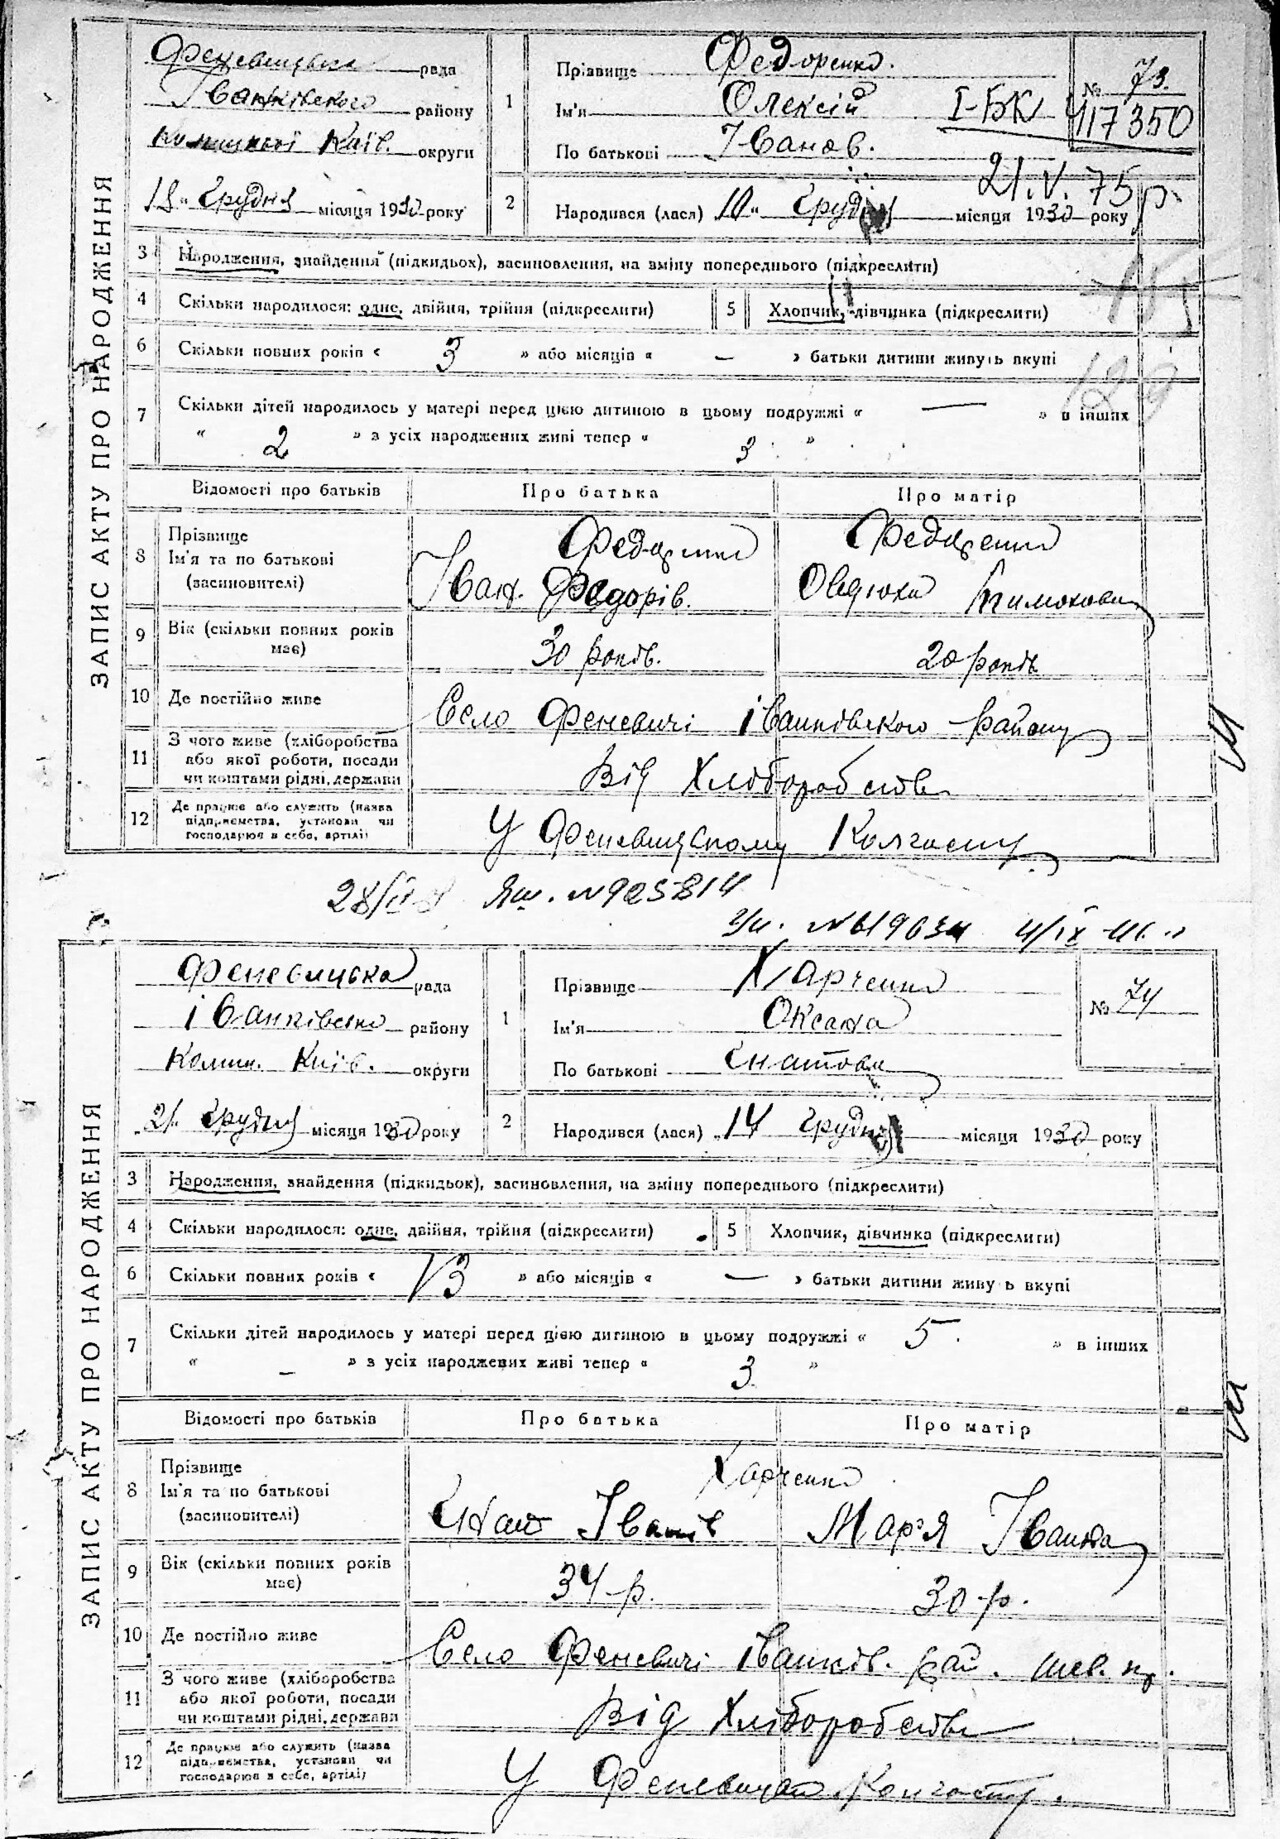 ЗАПИС АКТУ ПРО НАРОДЖЕННЯ
Феневицька рада
Іванківського району
Київ. округи
18 „ Грудня місяця 1930 року
1
Прізвище Федоренко.
Ім'я Олексій
По батькові Іванов.
№ 73.
І-БК 417350
21.V.75р.
2
Народився (лася) 10 „ Грудня місяця 1930 року
3 Народження, знайдення (підкидьох), засиновлення, на зміну попереднього (підкреслити)
4 Скільки народилося: одне, двійня, трійня (підкреслити)
5 Хлопчик, дівчинка (підкреслити)
6 Скільки повних років « 3 » або місяців « — » батьки дитини живуть вкупі
7 Скільки дітей народилось у матері перед цією дитиною в цьому подружжі « — » в інших
« 2 » з усіх народжених живі тепер « 3 »
Відомості про батьків Про батька Про матір
8 Прізвище
Ім'я та по батькові
(засиновителі)
Федоренко
Іван. Федорів.
Федоренко
Тимохова
9 Вік (скільки повних років має) 30 років. 20 років
10 Де постійно живе Село Феневичі Іванківського району
11 З чого живе (хліборобства
або якої роботи, посади
чи коштами рідні, держави
Від Хліборобства
12 Де працює або служить (назва
підприємства, установи чи
господарює в себе, артілі)
У Феневицькому Колгоспу
№925814
№619634
ЗАПИС АКТУ ПРО НАРОДЖЕННЯ
Феневицька рада
Іванківсько району
Київ. округи
21. Грудня місяця 1930 року
1
Прізвище Харченко
Ім'я Оксана
По батькові Гнатова
№ 74
2
Народився (лася) „ 14 Грудня місяця 1930 року
3 Народження, знайдення (підкидьок), засиновлення, на зміну попереднього (підкреслити)
4 Скільки народилося: одне, двійня, трійня (підкреслити)
5 Хлопчик, дівчинка (підкреслити)
6 Скільки повних років « 13 » або місяців « — » батьки дитини живуть вкупі
7 Скільки дітей народилось у матері перед цією дитиною в цьому подружжі « 5 » в інших
« – » з усіх народжених живі тепер « 3 »
Відомості про батьків Про батька Про матір
8 Прізвище
Ім'я та по батькові
(засиновителі)
Харченко
Гнат Іванів
Мар'я Іванова
9 Вік (скільки повних років має) 34 р. 30 р.
10 Де постійно живе Село Феневичі Іванків. рай.
11 З чого живе (хліборобства
або якої роботи, посади
чи коштами рідні, держави
Від Хліборобства
12 Де працює або служить (назва
підприємства, установи чи
господарює в себе, артілі)
У Колгоспу.